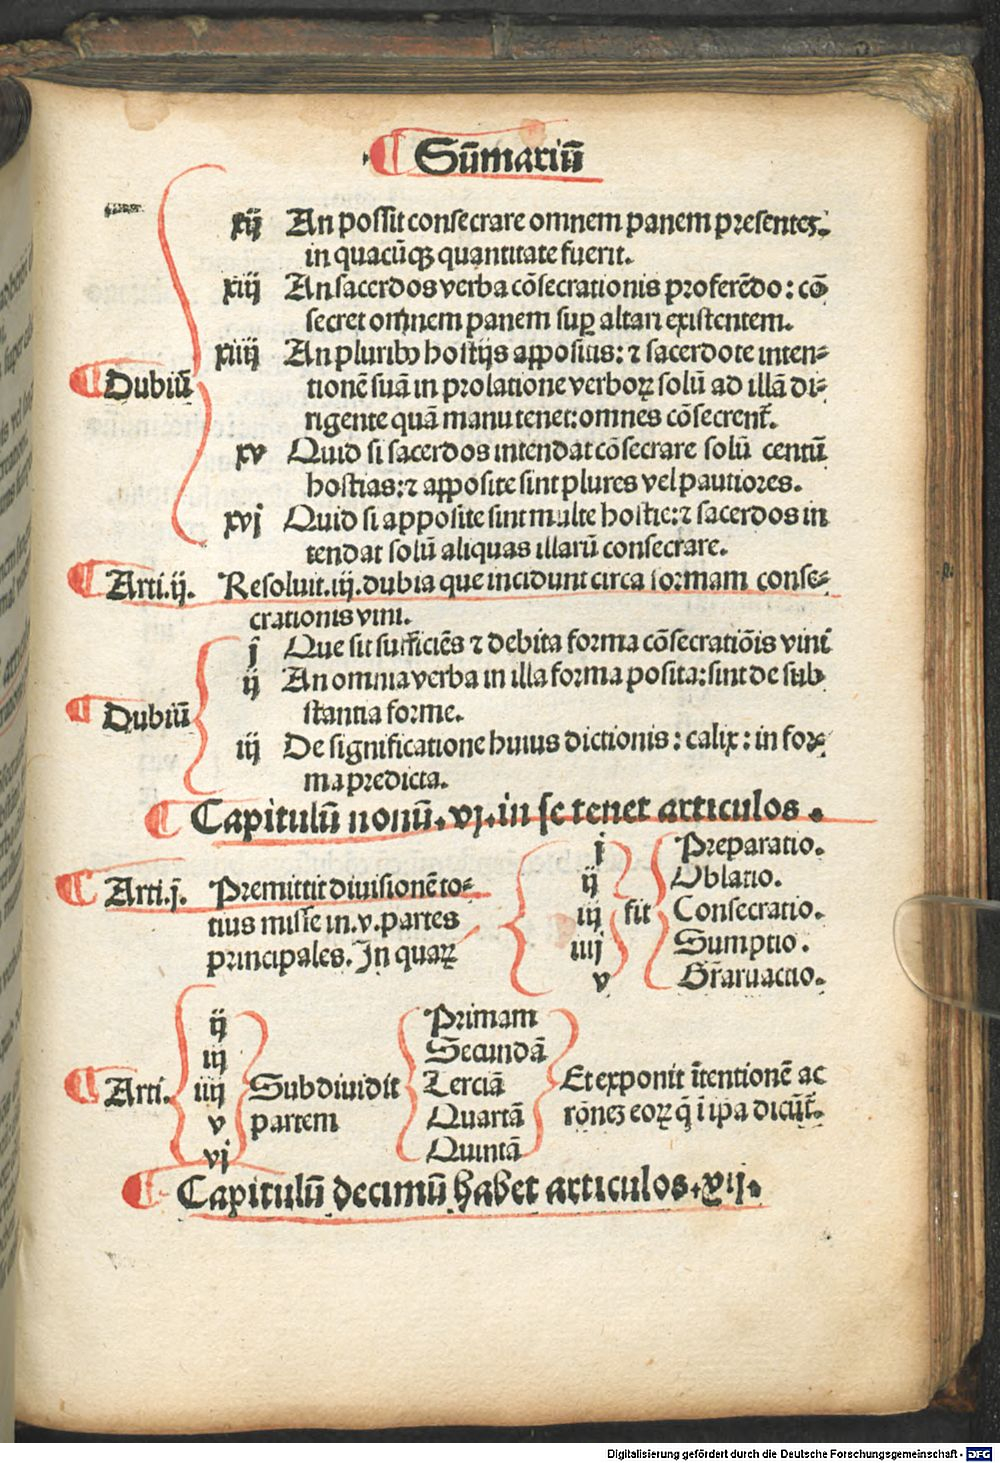 ¶ Sūmariū
xij An possit consecrare omnem panem presentez.
in quacūqꝫ quantitate fuerit.
xiij An sacerdos verba cōsecrationis proferēdo: cō
secret omnem panem suꝑ altari existentem.
¶ Dubiū
xiiij An pluribꝰ hostijs appositis: ⁊ sacerdote inten⸗
tionē suā in prolatione verboꝝ solū ad illā di⸗
rigente quā manu tenet: omnes cōsecrent̄.
xv Quid si sacerdos intendat cōsecrare solū centū
hostias: ⁊ apposite sint plures vel pautiores.
xvj Quid si apposite sint multe hostie: ⁊ sacerdos in
tendat solū aliquas illarū consecrare.
¶ Arti.ij. Resoluit.iij.dubia que incidunt circa formam conse⸗
crationis vini.
¶ Dubiū
j Que sit sufficiēs ⁊ debita forma cōsecratiōis vini
ij An omnia verba in illa forma posita: sint de sub
stantia forme.
iij De significatione huius dictionis: calix: in for⸗
ma predicta.
¶ Capitulū nonū.vj.in se tenet articulos.
¶ Arti.j. Premittit diuisionē to⸗
tius misse in.v.partes
principales. In quaꝝ
j
ij
iij
iiij
v
fit
Preparatio.
Oblatio.
Consecratio.
Sumptio.
Gr̄aruactio.
¶ Arti.
ij
iij
iiij
v
vj
Subdiuidit
partem
Primam
Secundā
Terciā
Quartā
Quintā
Et exponit ītentionē ac
rōneꝫ eoꝝ q̄ ī ipa dicūt̄.
¶ Capitulū decimū habet articulos.xij.
Digitalisierung gefördert durch die Deutsche Forschungsgemeinschaft - DFG